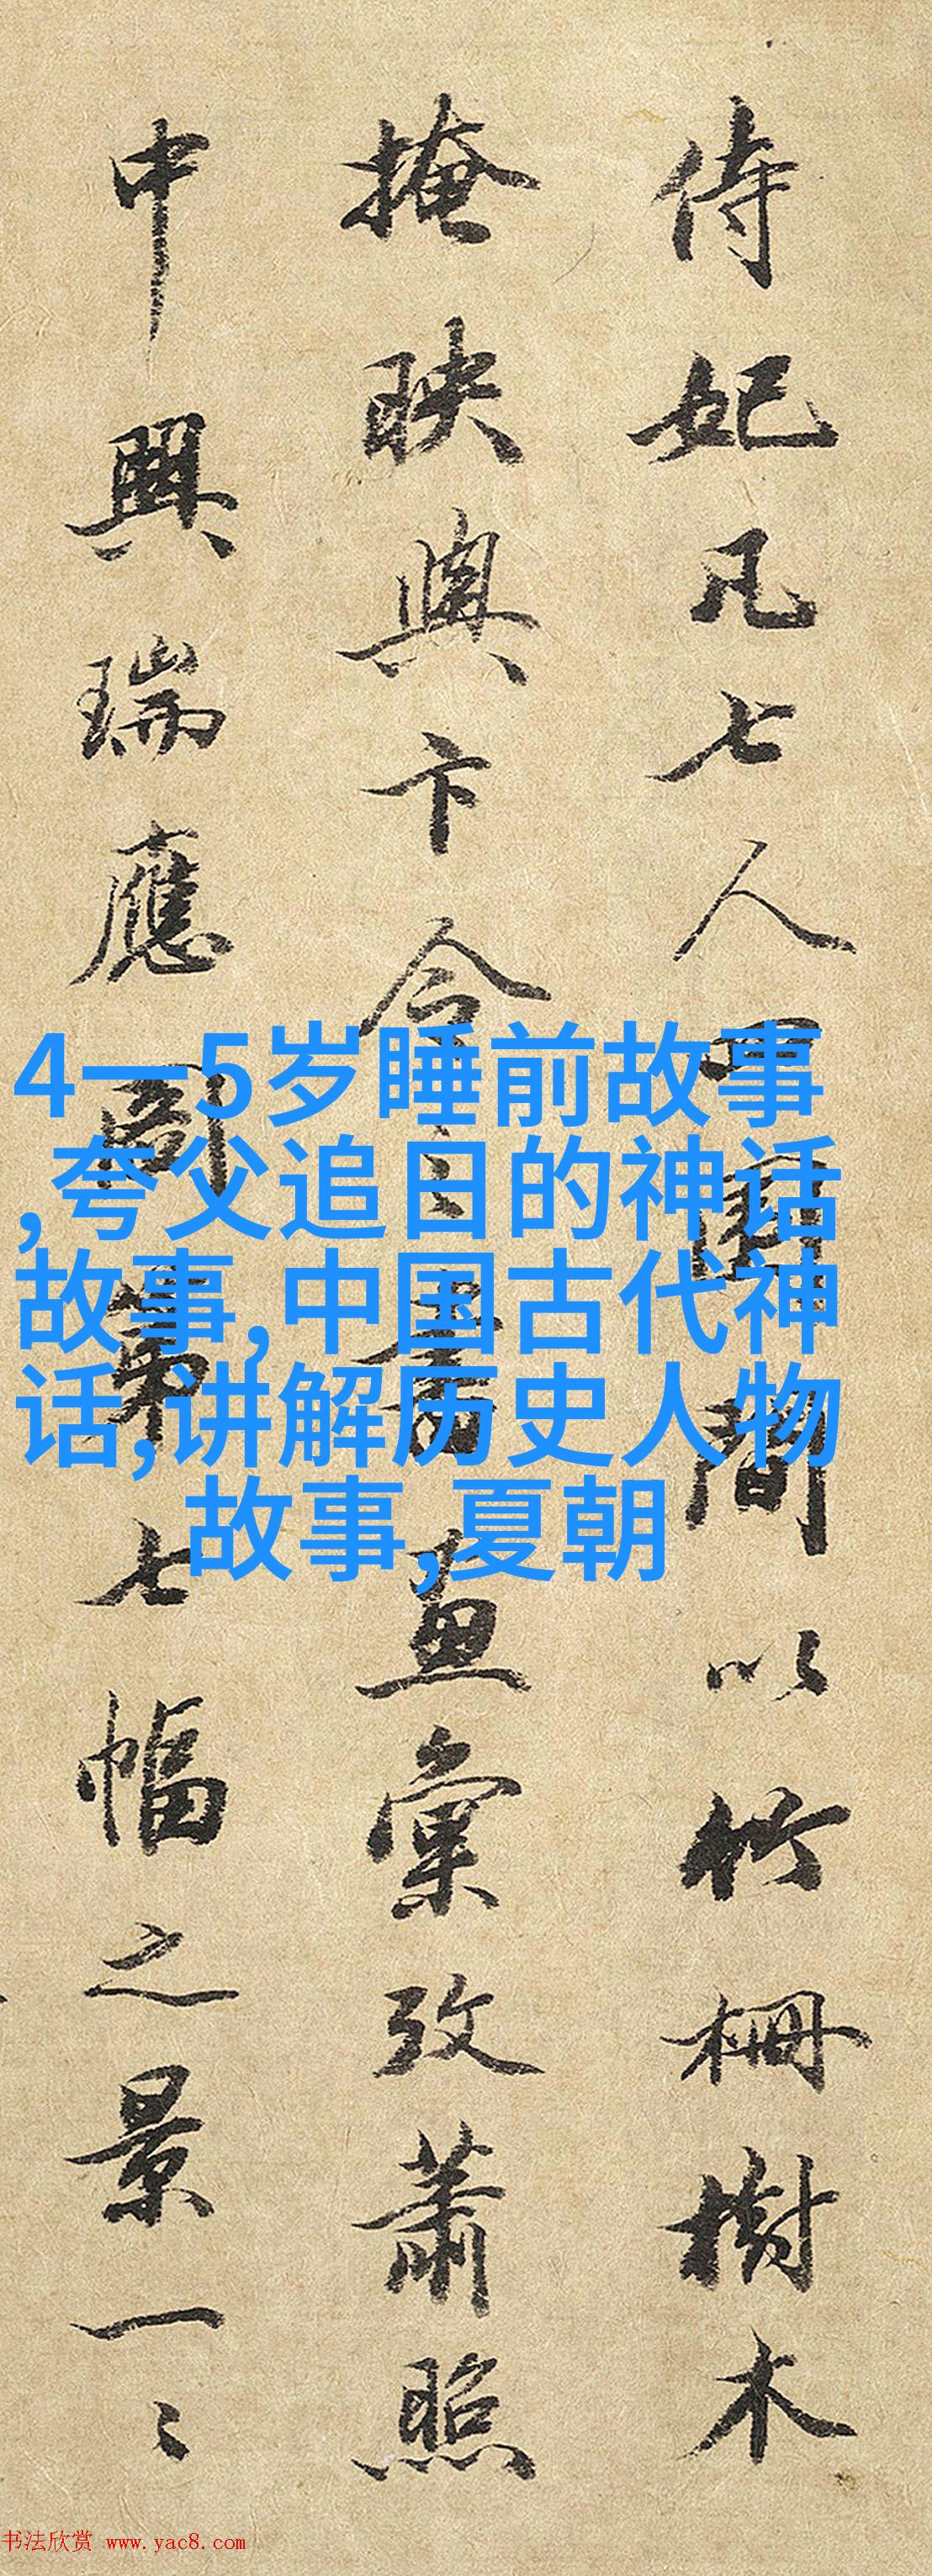 侍妃凡七人四周間以竹柵樹木
掩映與卞令之書畫彙攷蕭照
中興瑞應圖第七幅之景一〻
4一5岁睡前故事
,夸父追日的神话
故事,中国古代神
话,讲解历史人物
故事,夏朝
书法欣赏 www.yac8.com